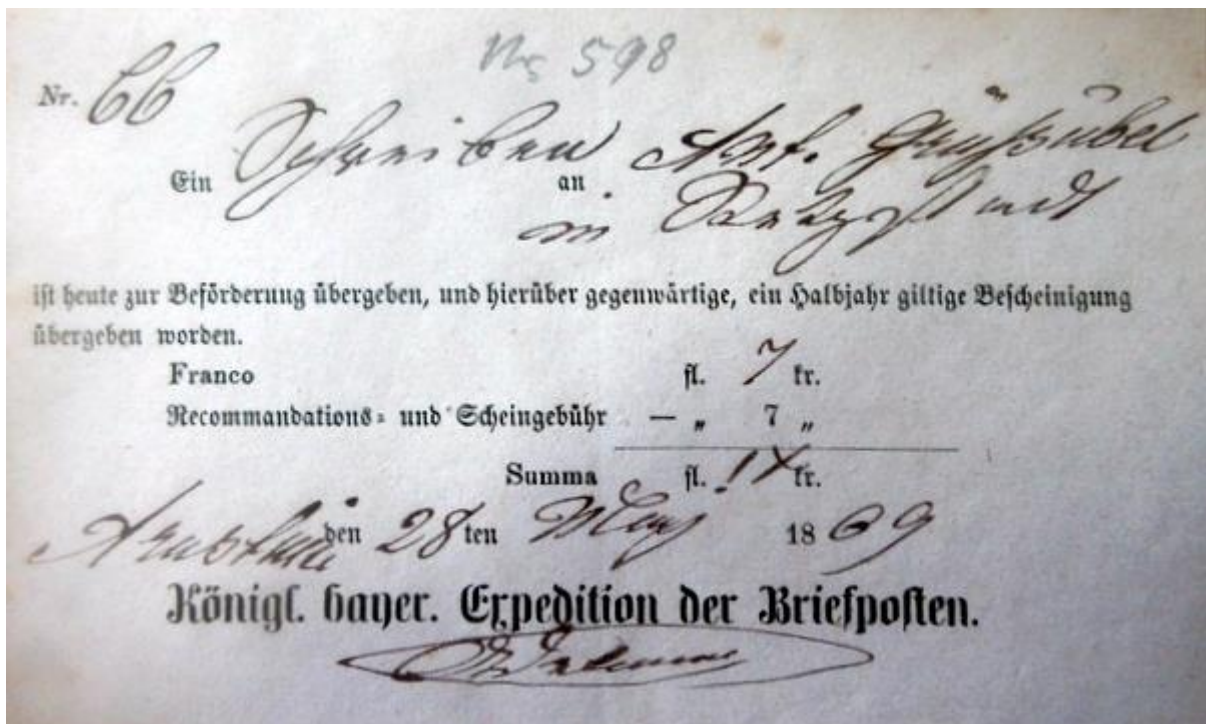 Nr. 598
Nr. 66
Ein Schreiben an
in Retzstadt
ist heute zur Beförderung übergeben, und hierüber gegenwärtige, ein Halbjahr giltige Bescheinigung
übergeben worden.
Franco fl. 7 kr.
Recommandations- und Scheingebühr — „ 7 „
Summa fl. 14 kr.
Arnstein den 28ten May 1869
Königl. bayer. Expedition der Briefposten.